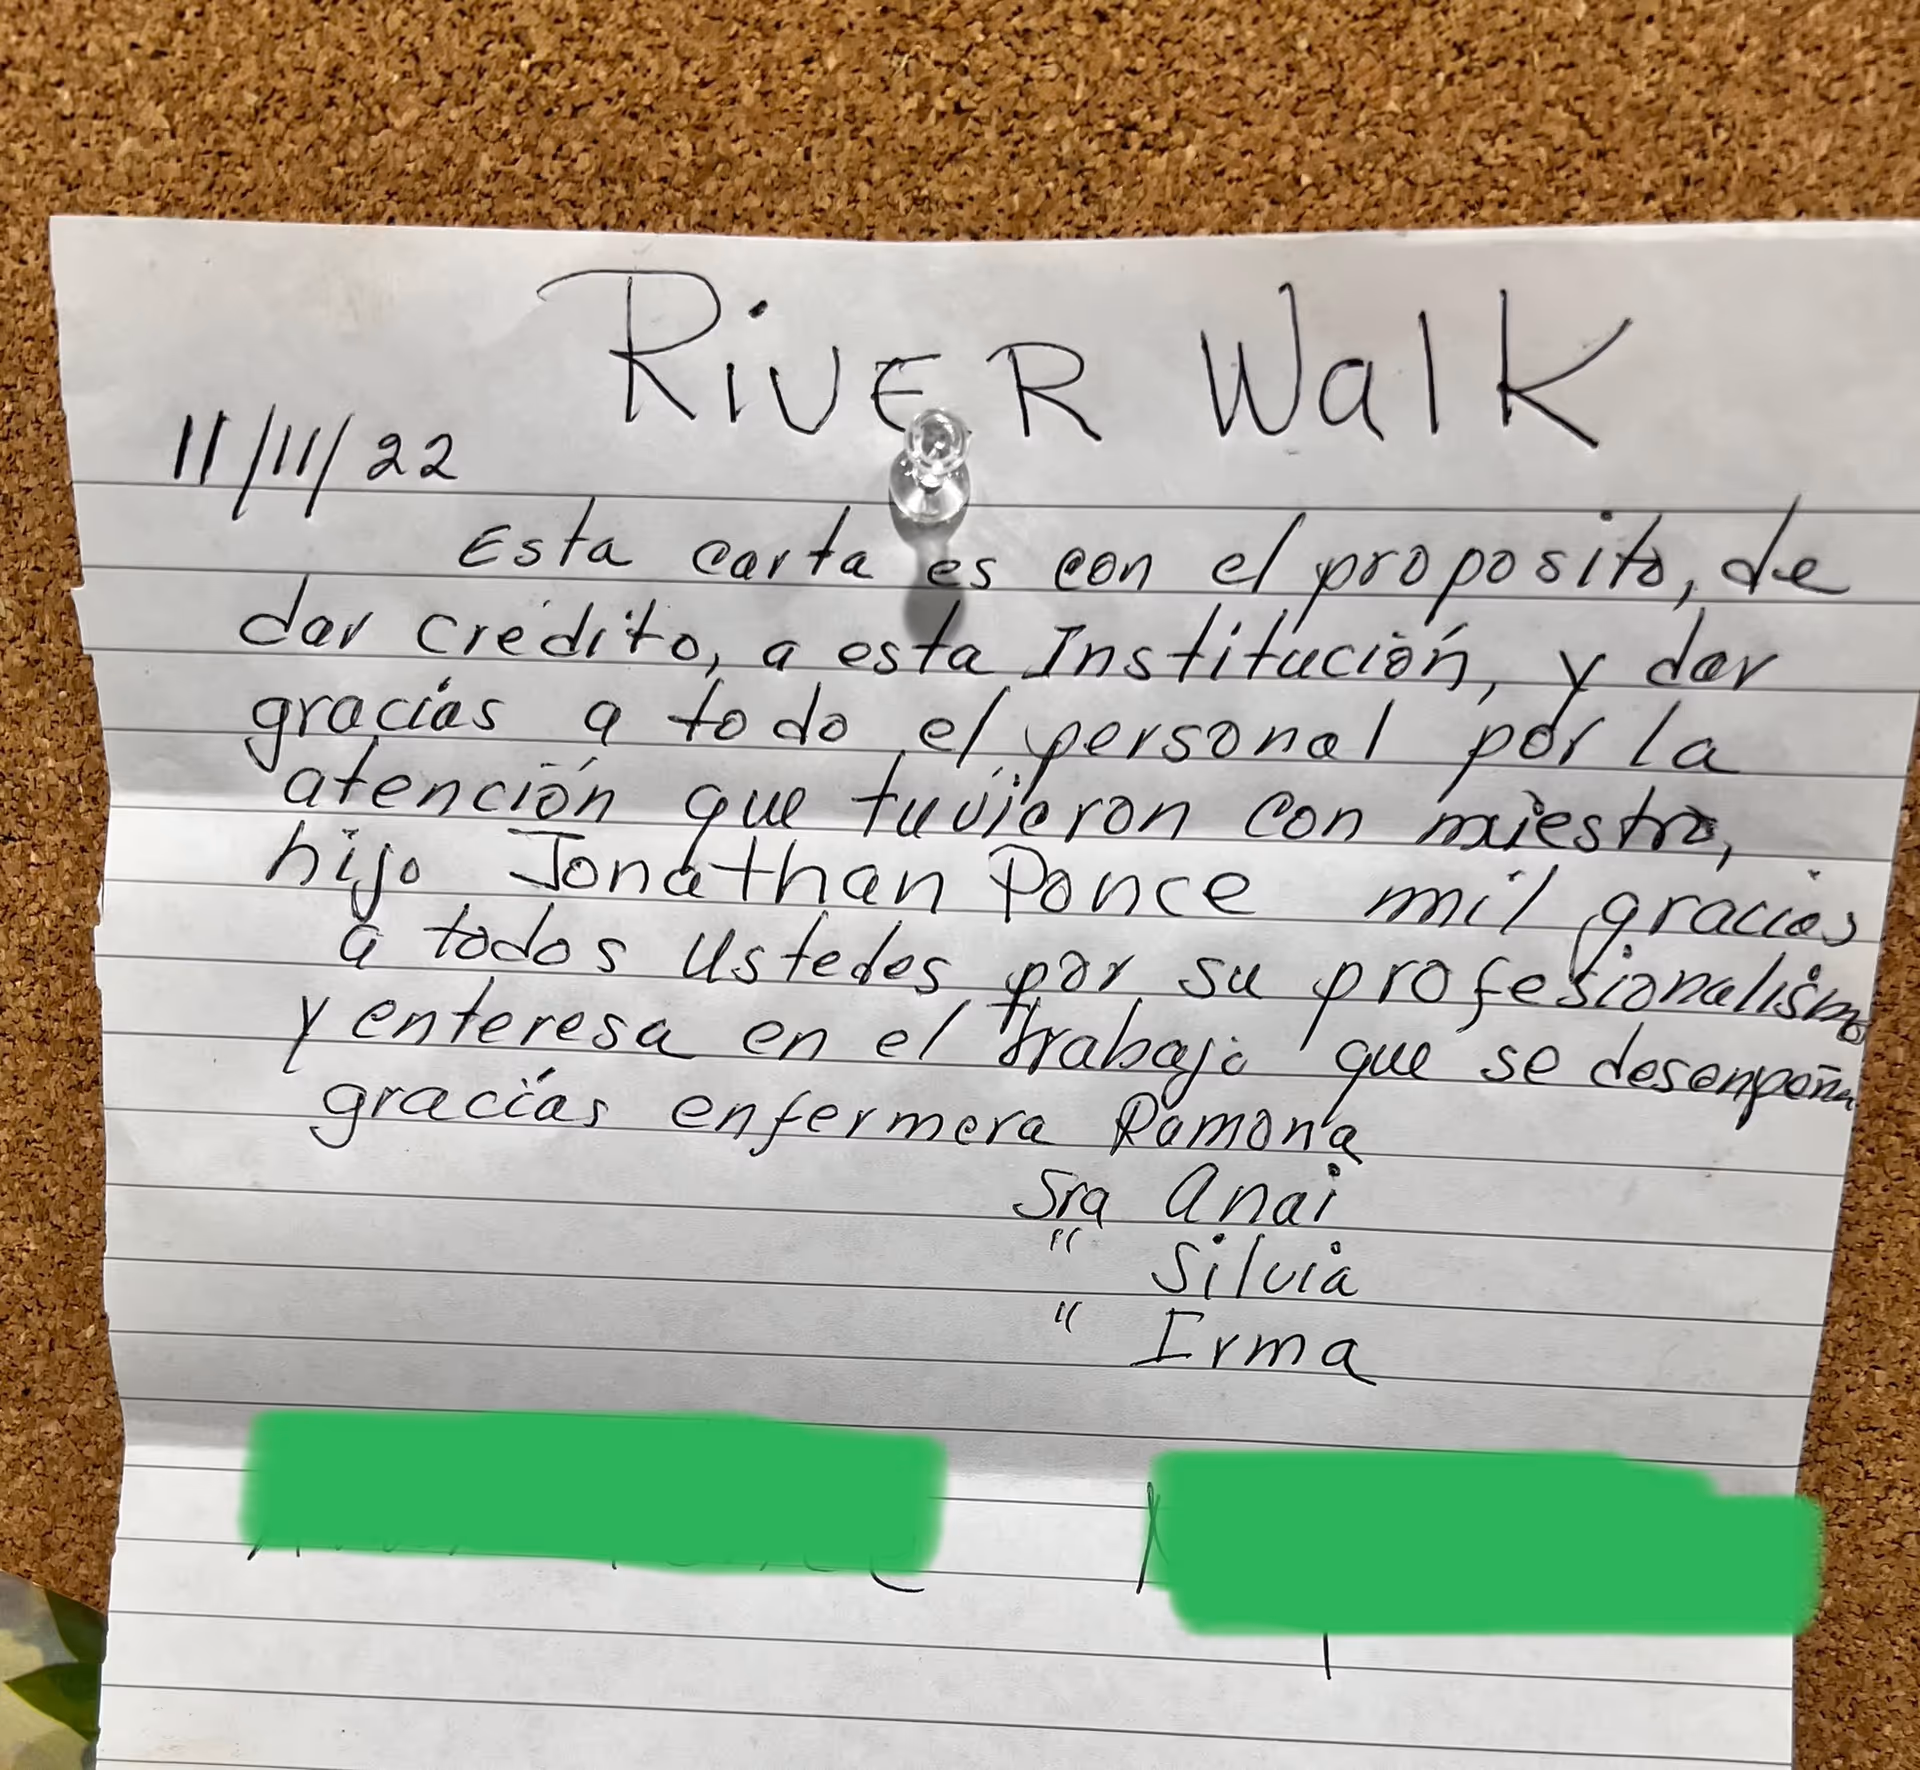 RiVER Walk
11/11/22
Esta carta es con el proposito, de
dar crédito, a esta Institución, y dar
gracias a todo el personal por la
atención que tuvieron con nuestro,
hijo Jonathan Ponce mil gracias
a todos Ustedes por su profesionalismo
y enteresa en el trabajo que se desenpeña
gracias enfermera Ramona
Sra Anai
" Silvia
" Irma